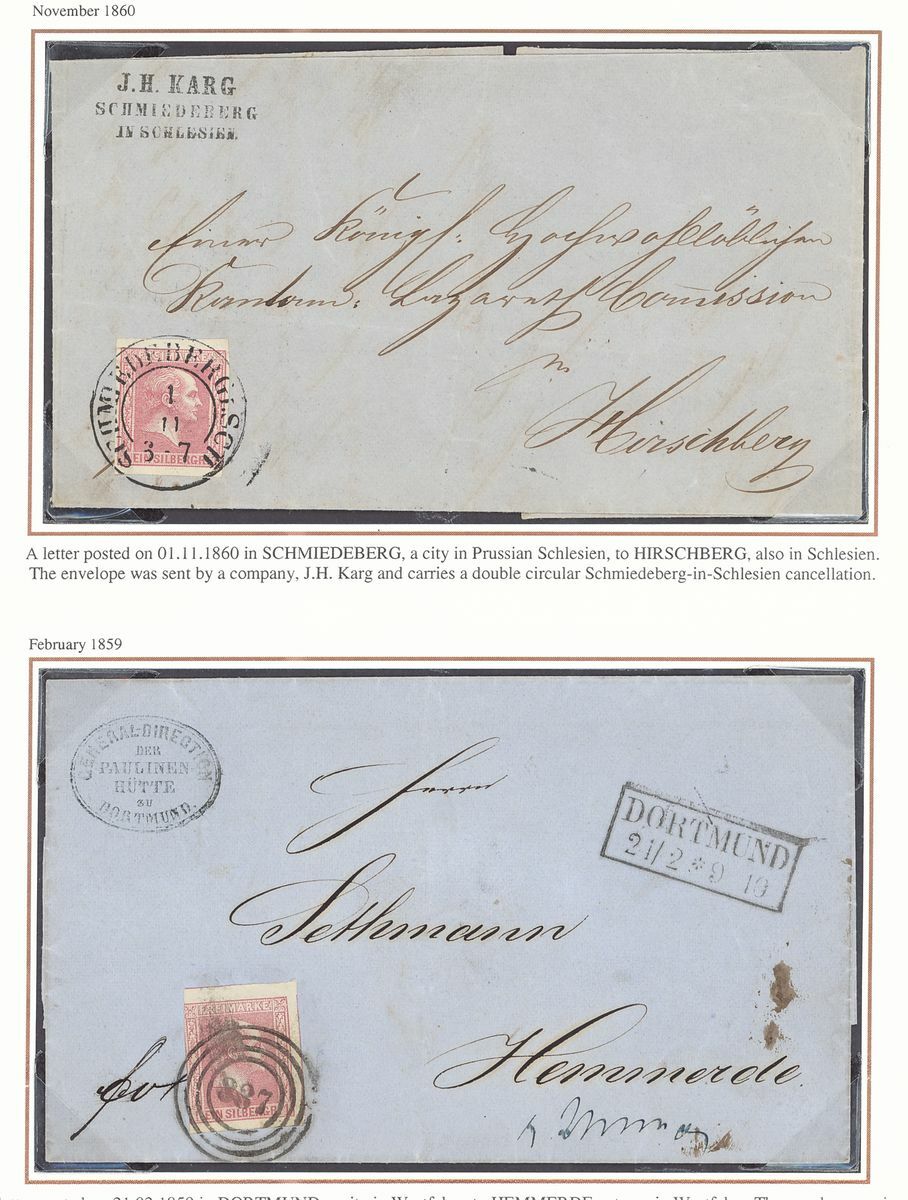 November 1860
J.H. KARG
SCHMIEDEBERG
IN SCHLESIEN.
Einer Königl: Hochwohllöblichen
Kantonn: Lazareth Commission
zu
Hirschberg
SCHMIEDEBERG I. SCH
1
11
3 - 7
EIN SILBERGR
A letter posted on 01.11.1860 in SCHMIEDEBERG, a city in Prussian Schlesien, to HIRSCHBERG, also in Schlesien.
The envelope was sent by a company, J.H. Karg and carries a double circular Schmiedeberg-in-Schlesien cancellation.
February 1859
GENERAL-DIRECTION
DER
PAULINEN
HÜTTE
ZU
DORTMUND.
Herrn
DORTMUND
21/2 * 9 10
Sethmann
FREIMARKE
887
EIN SILBERGR
Hemmerde.